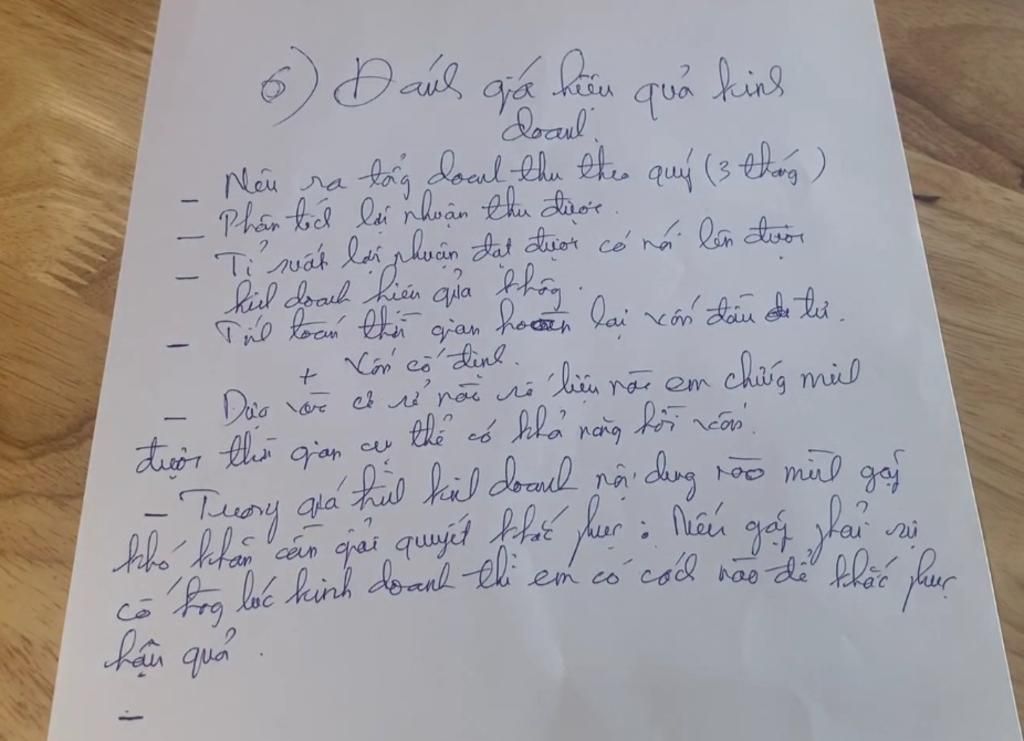 6) Đánh giá hiệu quả kinh
doanh.
- Nêu ra tổng doanh thu theo quý (3 tháng)
- Phân tích lợi nhuận thu được.
- Tỉ suất lợi nhuận đạt được có nói lên được
kinh doanh hiệu quả không.
- Tính toán thời gian hoàn lại vốn đầu tư.
+ Vốn cố định.
- Dựa vào cơ sở nào số liệu nào em chứng minh
được thời gian cụ thể có khả năng hồi vốn.
- Trong quá trình kinh doanh nội dung nào mình gặp
khó khăn cần giải quyết khắc phục: Nếu gặp phải sự
cố trong lúc kinh doanh thì em có cách nào để khắc phục
hậu quả.
-